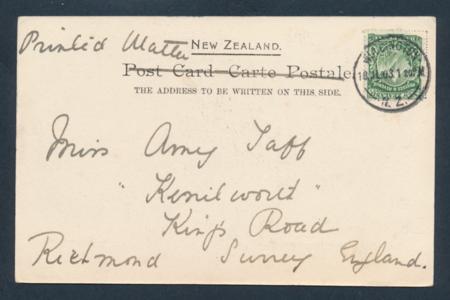 Printed Matter
NEW ZEALAND.
Post Card - Carte Postale.
THE ADDRESS TO BE WRITTEN ON THIS SIDE.
WELLINGTON
N. Z.
Miss Amy Taff
"Kenilworth"
Kings Road
Richmond Surrey England.